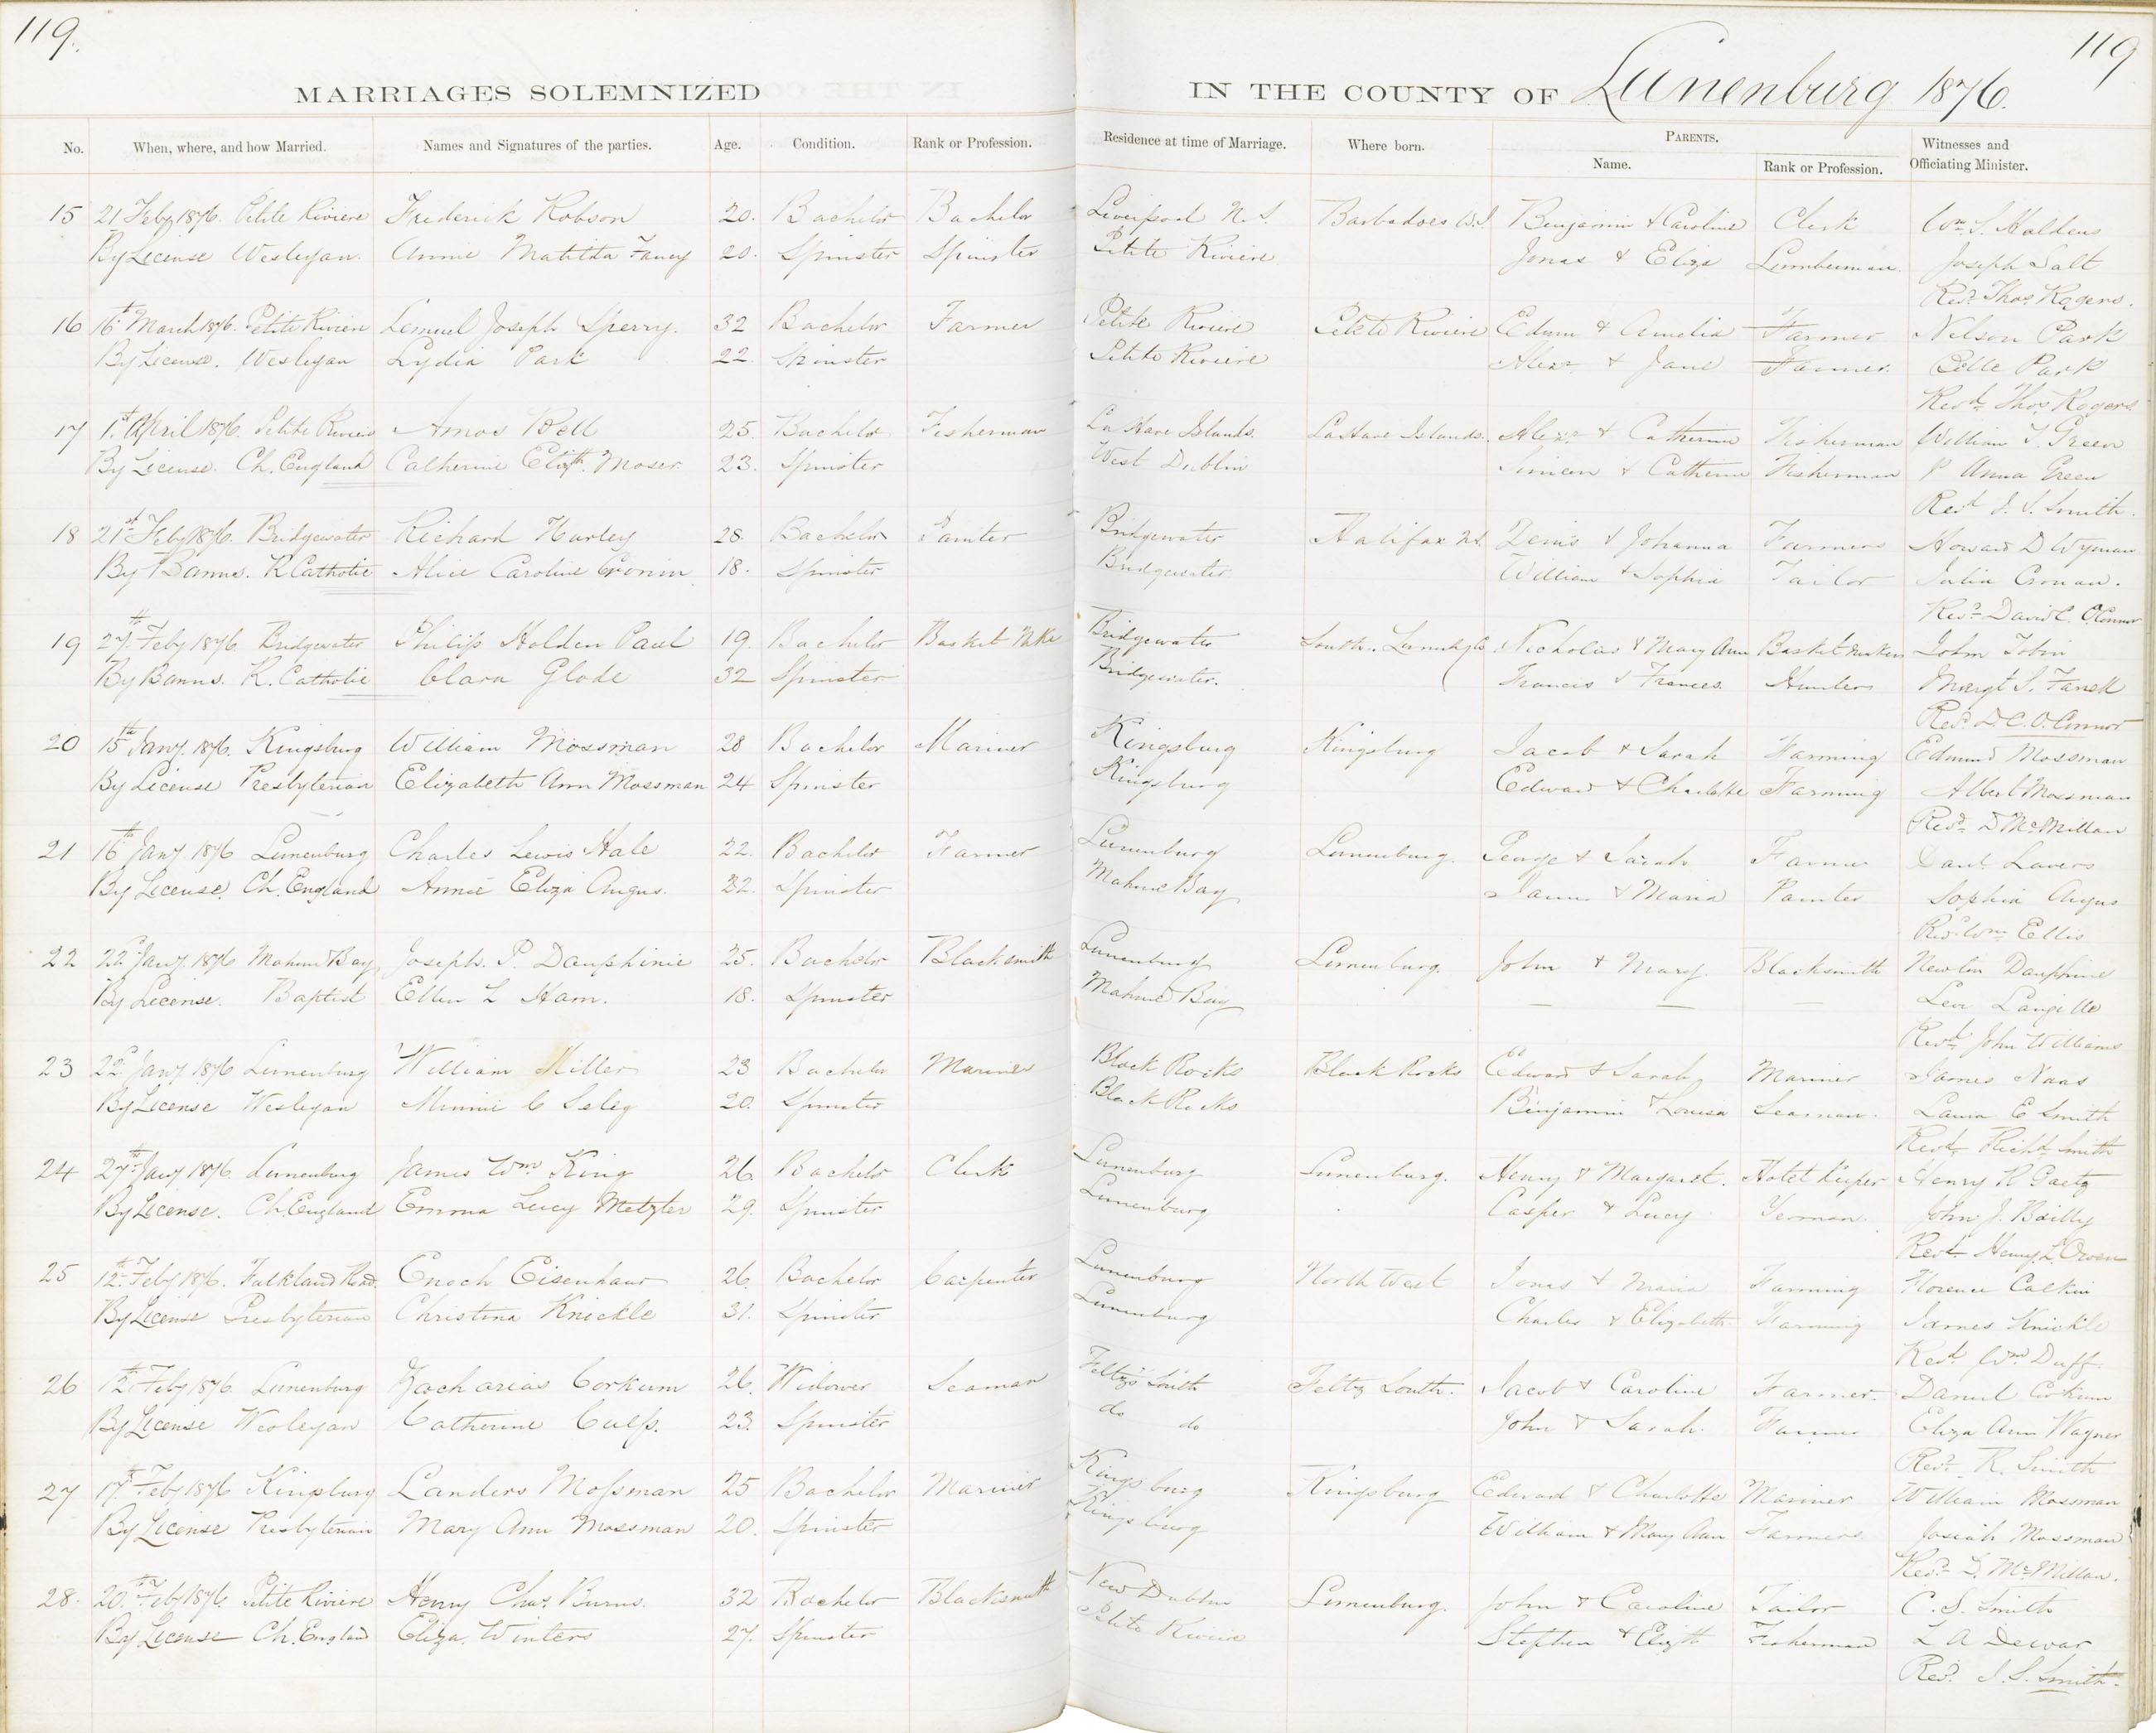 119. 119
MARRIAGES SOLEMNIZED IN THE COUNTY OF Lunenburg 1876.
No. When, where, and how Married. Names and Signatures of the parties. Age. Condition. Rank or Profession. Residence at time of Marriage. Where born. PARENTS. Name. Rank or Profession. Witnesses and Officiating Minister.
15 21 Feby 1876. Petite Riviere Frederick Robson 20. Bachelor Bachelor Liverpool N.S. Barbadoes W.I. Benjamin & Caroline Clerk Wm. S.
By License Wesleyan. Annie Matilda Fancy 20. Spinster Spinster Petite Riviere Jonas & Eliza Lumberman. Joseph Salt
Revd. Thos. Rogers.
16 16th March 1876. Petite Riviere Lemuel Joseph Sperry. 32 Bachelor Farmer Petite Riviere Petite Riviere Edwm & Amelia Farmer Nelson Park
By License. Wesleyan Lydia Park 22. Spinster Petite Riviere Alexr. & Jane Farmer. Belle Park
Revd. Thos. Rogers
17 1st April 1876. Petite Riviere Amos Bell 25. Bachelor Fisherman La Have Islands. LaHave Islands. Alexr. & Catherine Fisherman William T. Green
By License. Ch. England Catherine Elizth. Moser. 23. Spinster West Dublin Simeon & Catherine Fisherman P Anna Green
Revd J. S. Smith.
18 21st Feby 1876. Bridgewater Richard Hurley 28. Bachelor Painter Bridgewater Halifax N.S. Denis & Johanna Farmers Howard D Wyman
By Banns. R Catholic Alice Caroline Cronin 18. Spinster Bridgewater William & Sophia Tailor Julia Cronan.
Revd. David C. O'Connor
19 27th Feby 1876 Bridgewater Philip Holden Paul 19. Bachelor Basket Mke Bridgewater Lunenbg Co Nicholas & Mary Ann Basket makers John Tobin
By Banns. R. Catholic Clara Glode 32 Spinster Bridgewater. Francis & Frances. Hunters Margt S. Farrell
Revd. D. C. O'Connor
20 15th Jany. 1876. Kingsburg William Mossman 28 Bachelor Mariner Kingsburg Kingsburg Jacob & Sarah Farming Edmund Mossman
By License Presbyterian Elizabeth Ann Mossman 24 Spinster Kingsburg Edward & Charlotte Farming Albert Mossman
Revd. D McMillan
21 16th Jany. 1876 Lunenburg Charles Lewis Hale 22. Bachelor Farmer Lunenburg Lunenburg. George & Sarah Farmer Danl. Lavers
By License. Ch. England Annie Eliza Angus. 22. Spinster Mahone Bay James & Maria Painter Sophia Angus
Revd. Wm. Ellis
22 22d Jany. 1876 Mahone Bay Joseph. P. Dauphinie 25. Bachelor Blacksmith Lunenburg Lunenburg. John & Mary Blacksmith Newton Dauphine
By License. Baptist Ellen L Ham. 18. Spinster Mahone Bay — — — Levi Langille
Revd. John Williams
23 22d Jany 1876 Lunenburg William Miller 23 Bachelor Mariner Black Rocks Black Rocks Edward & Sarah Mariner James Naas
By License Wesleyan Minnie C Seleg 20. Spinster Black Rocks Benjamin & Louisa Seaman. Laura E Smith
Revd. Richd Smith
24 27th Jany 1876. Lunenburg James Wm. King 26. Bachelor Clerk Lunenburg Lunenburg. Henry & Margaret. Hotel Keeper Henry R Gaetz
By License. Ch. England Emma Lucy Metzler 29. Spinster Lunenburg Casper & Lucy Yeoman. John J. Bailly
Revd. Henry L. Owen
25 12th Feby 1876. Falkland Road. Enoch Eisenhaur 26. Bachelor Carpenter Lunenburg North West Jonas & Maria Farming Florence Calkin
By License Presbyterian Christina Knickle 31. Spinster Lunenburg Charles & Elizabeth Farming James Knickle
Revd. Wm. Duff.
26 12th Feby 1876. Lunenburg Zacharias Corkum 26. Widower Seaman Feltzs South Feltz South. Jacob & Caroline Farmer. Daniel Corkum
By License Wesleyan Catherine Culp. 23. Spinster do do John & Sarah. Farmer Eliza Ann Wagner
Revd. R. Smith
27 17th Feby 1876 Kingsburg Landers Mossman 25 Bachelor Mariner Kingsburg Kingsburg Edward & Charlotte Mariner William Mossman
By License Presbyterian Mary Ann Mossman 20. Spinster Kingsburg William & Mary Ann Farmers Josiah Mossman
Revd. D. McMillan.
28. 20th Feby 1876. Petite Riviere Henry Chas. Burns. 32 Bachelor Blacksmith New Dublin Lunenburg. John & Caroline Tailor C. S. Smith
By License Ch. England Eliza Winters 27. Spinster Petite Riviere Stephen & Elizth Fisherman L A Dewar
Revd. J. S. Smith.